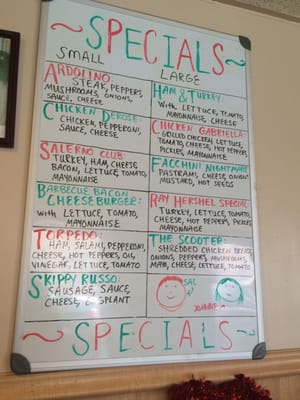 SPECIALS
SMALL
LARGE
ARDOLINO:
STEAK, PEPPERS,
MUSHROOMS, ONIONS,
SAUCE, CHEESE
CHICKEN DEROSE:
CHICKEN, PEPPERONI,
SAUCE, CHEESE
SALERNO CLUB:
TURKEY, HAM, CHEESE
BACON, LETTUCE, TOMATO
MAYONNAISE
BARBECUE BACON
CHEESEBURGER:
WITH LETTUCE, TOMATO,
MAYONNAISE
TORPEDO:
HAM, SALAMI, PEPPERONI,
CHEESE, HOT PEPPERS, OIL,
VINEGAR, LETTUCE, TOMATO
SKIPPY RUSSO:
SAUSAGE, SAUCE,
CHEESE, EGGPLANT
HAM & TURKEY
WITH LETTUCE, TOMATO,
MAYONNAISE, CHEESE
CHICKEN GABRIELLA:
GRILLED CHICKEN, LETTUCE,
TOMATO, CHEESE, HOT PEPPERS,
PICKLES, MAYONNAISE
FACCHINI NIGHTMARE
PASTRAMI, CHEESE, ONION
MUSTARD, HOT SEEDS
RAY HERSHEL SPECIAL
TURKEY, LETTUCE, TOMATO,
CHEESE, HOT PEPPERS, PICKLES
MAYONNAISE
THE SCOOTER:
SHREDDED CHICKEN BREAST,
ONIONS, PEPPERS, MUSHROOMS,
MAYO, CHEESE, LETTUCE, TOMATO
SAL
JOANNE
SPECIALS